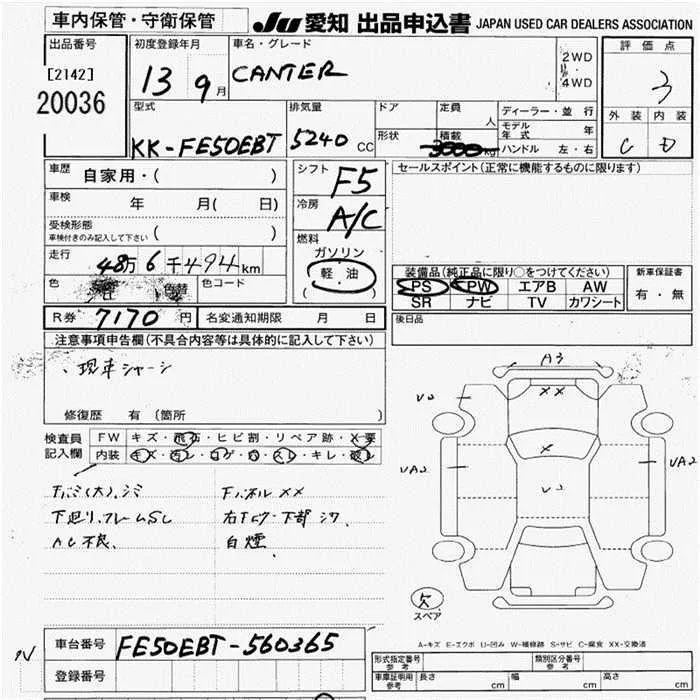 車内保管・守衛保管
JU 愛知 出品申込書 JAPAN USED CAR DEALERS ASSOCIATION
出品番号
[2142]
20036
初度登録年月
13 9月
車名・グレード
CANTER
2WD
4WD
評価点
3
外装 内装
C D
型式
KK-FE50EBT
排気量
5240 CC
ドア
形状
定員
人
積載
3000 kg
ディーラー・並行
モデル年式 年
ハンドル 左・右
車歴 自家用・( )
車検 年 月( 日)
受検形態
車検付きのみ記入して下さい ( )
走行 48万6千494km
色 色替 色コード
シフト F5
冷房 A/C
燃料
ガソリン
軽・油
( )
セールスポイント(正常に機能するものに限ります)
装備品(純正品に限り○をつけてください)
PS PW エアB AW
SR ナビ TV カワシート
新車保証書
有・無
R券 7170 円 名変通知期限 月 日
後日品
注意事項申告欄(不具合内容等は具体的に記入して下さい)
、現車シャーシ
修復歴 有 (箇所 )
検査員記入欄
FW キズ・飛石・ヒビ割・リペア跡・X要
内装 キズ・汚レ・コゲ・穴・スレ・キレ・破レ
下廻リ、フレームSし
AC不良、
白煙、
A3
XX
X
U2
UA2
UA2
スペア
A-キズ E-エクボ U-凹み W-補修跡 S-サビ C-腐食 XX-交換済
車台番号 FE50EBT-560365
登録番号
形式指定番号 参考
類別区分番号 参考
車庫証明用 参考 長さ cm 幅 cm 高さ cm